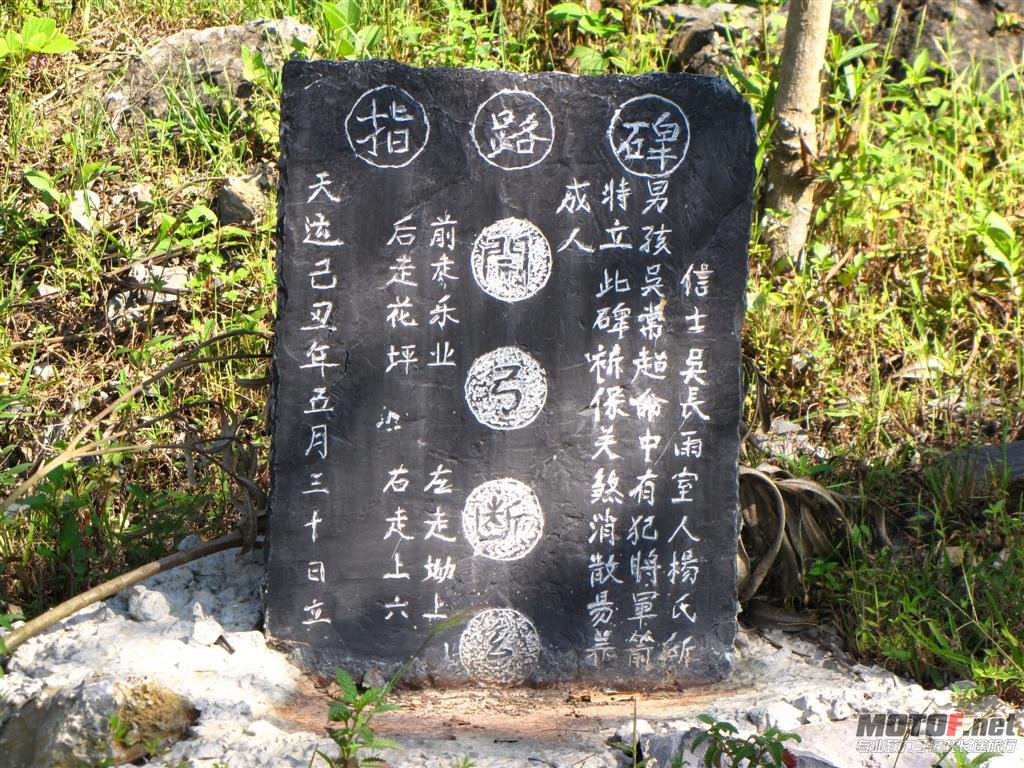 指路碑
信士吳長雨室人楊氏所
男孩吳常超命中有犯將軍箭
特立此碑祈保关煞消散易养
成人
開弓断
前走乐业 左走坳上
后走花坪 右走上六
天运己丑年五月三十日立
MOTOF.net
专业致力于摩托长途旅行